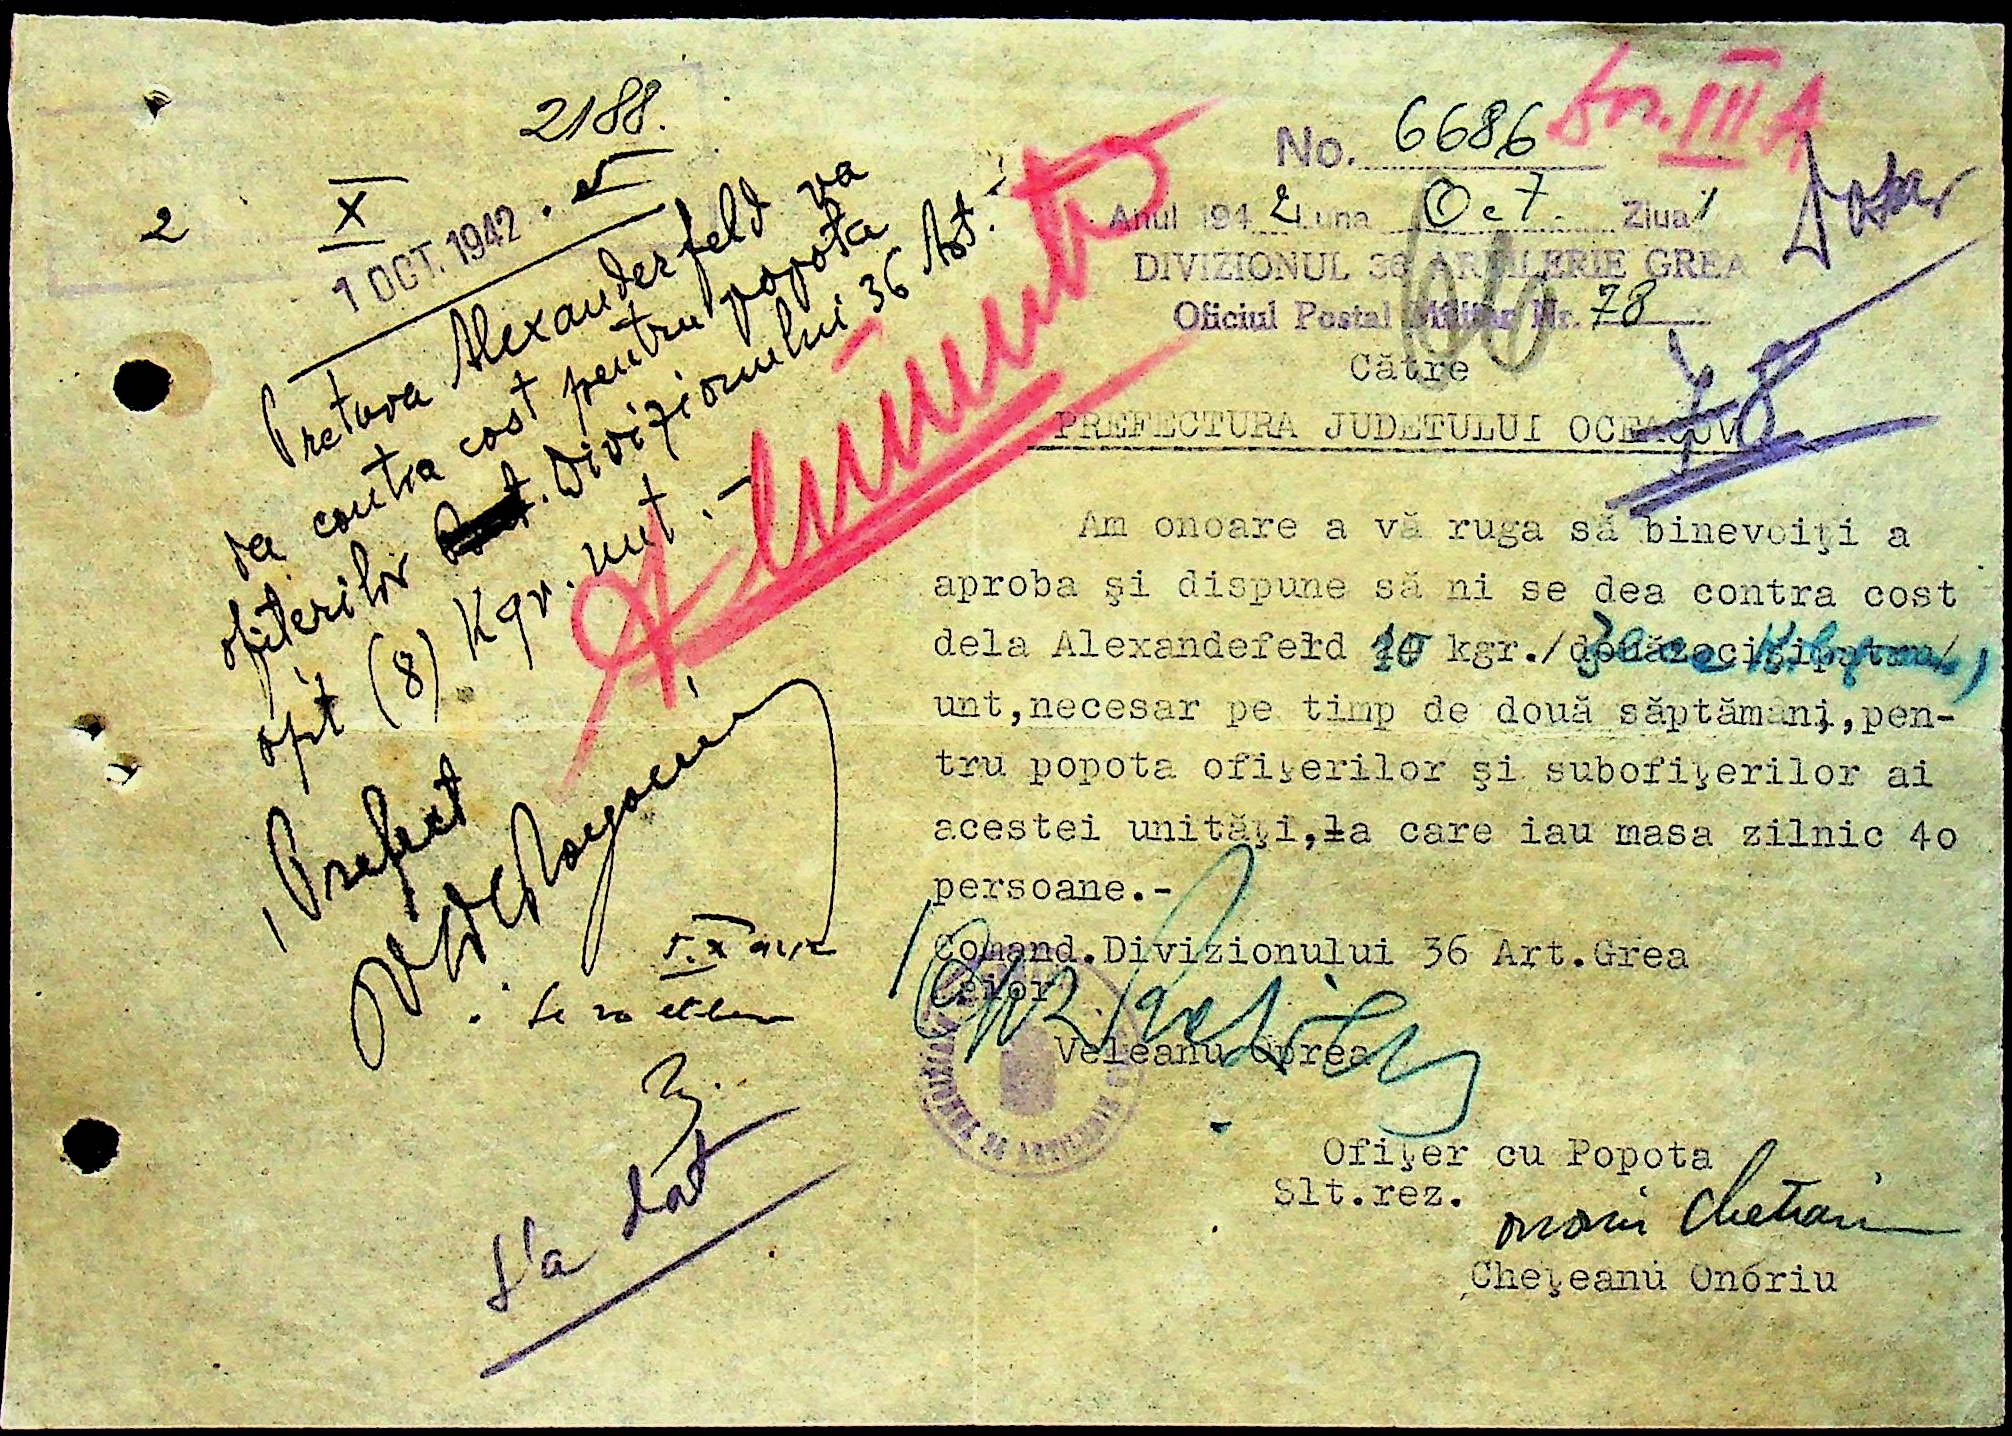 2188.
2 X
1 OCT. 1942
Pretura Alexanderfeld va
da contra cost pentru popota
ofiterilor Divizionului 36 Art.
opt (8) Kgr. unt.-
Prefect
S'a dat
No. 6686
III A
Dosar
Anul 1942 Luna Oct. Ziua 1
DIVIZIONUL 36 ARTILERIE GREA
Oficiul Postal Militar Nr. 78
66
Către
48
PREFECTURA JUDETULUI OCEACOV
Aliments
Am onoare a vă ruga să binevoiţi a
aproba şi dispune să ni se dea contra cost
dela Alexandeferd 10 kgr./
unt,necesar pe timp de două săptămâni,pen-
tru popota ofiţerilor şi subofiţerilor ai
acestei unităţi,la care iau masa zilnic 4o
persoane.-
Comand.Divizionului 36 Art.Grea
Veleanu Oprea
Ofiţer cu Popota
Slt.rez.
Cheţeanu Onoriu